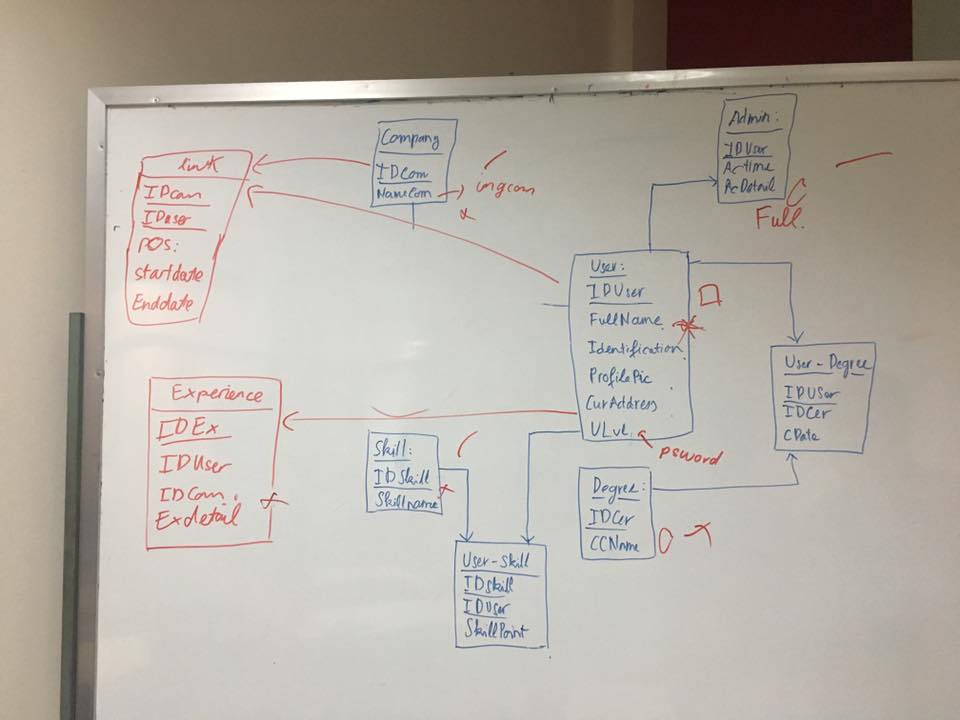 link
IDcom
IDuser
POS:
startdate
Enddate
Company
IDCom
NameCom
imgcom
Admin:
IDUser
AcTime
AcDetail
Full.
User:
IDUser
FullName
Identification
ProfilePic
CurAddress
ULvl.
psword
User-Degree
IDUser
IDCer
CDate
Experience
IDEx
IDUser
IDCom.
Exdetail
Skill:
IDSkill
Skillname
Degree:
IDCer
CCName
User-Skill
IDskill
IDUser
SkillPoint